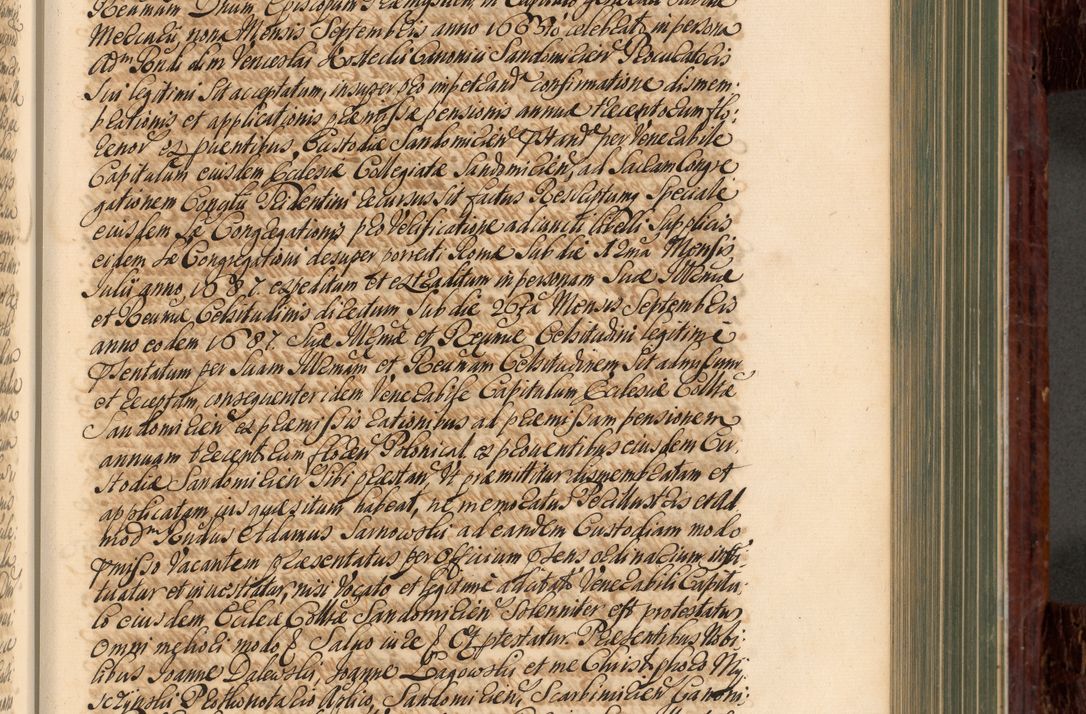 Reverendissimum Dnum Episcopum
Mercurii, nona Mensis Septembris anno 1683tio celebrat, in persona
Adm Rndi dim Venceslai Kostecki Canonici Sandomirien Procuratoris
sui legitimi sit acceptatum, insuper pro impetrand confirmatione dismem-
brationis et applicationis præmissæ pensionis annuæ trecentorum flo:
renor ex proventibus, Custodiæ Sandomirien per Venerabile
Capitulum eiusdem Ecclesiæ Collegiatæ Sandomirien, ad Sacram Congre
gationem Concilii Tridentini recursus sit factus Rescriptumq speciale
eiusdem Sæ Congregationis pro verificatione adiuncti libelli supplicis
eidem Sæ Congregationi desuper porrecti Romæ sub die 12ma Mensis
Julii anno 1687. expeditum et extraditum in personam Suæ Illmæ
et Reumæ Celsitudinis directum sub die 26ta Mensis Septembris
anno eodem 1687. Suæ Illmæ et Reumæ Celsitudini legitime
pntentatum per Suam Illmam et Reumam Celsitudinem sit admissum
et receptum, consequenter idem Venerabile Capitulum Ecclesiæ Colltæ
Sandomirien ex præmissis rationibus ad præmissam pensionem
annuam trecentorum floren Polonical ex proventibus eiusdem Cu-
stodiæ Sandomirien sibi præstan, ut præmittitur dismembratam et
applicatam ius quæsitum habeat, ne memoratus Perillustris et Ad
modm Rndus Eldamus Sarnowski ad eandem Custodiam modo
pmisso vacantem præsentatus per Officium pntens ordinarium insti
tuatur et investiatur, nisi vocato et legitime Venerabili Capitu-
lo eiusdem Eccleæ Colltæ Sandomirien solenniter est protestatus
omni meliori modo Salvo iure Et ptestatur. Præsentibus Nobi
libus Joanne Dalewski, Joanne Łagowski et me Christophoro My
szyński Prothonotario Aplico, Sandomirien, Scarbimirien Canoni